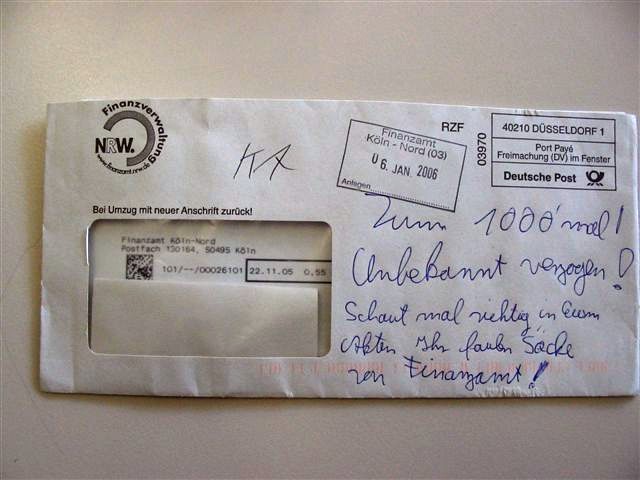 Finanzverwaltung
NRW.
www.finanzamt.nrw.de
KA
Finanzamt
Köln - Nord (03)
06. JAN. 2006
Anlagen
RZF
03970
40210 DÜSSELDORF 1
Port Payé
Freimachung (DV) im Fenster
Deutsche Post
Bei Umzug mit neuer Anschrift zurück!
Finanzamt Köln-Nord
Postfach 130164, 50495 Köln
101/--/00026101 22.11.05 0,55
Zum 1000'mal!
Unbekannt verzogen!
Schaut mal richtig in Euren
Akten Ihr faulen Säcke
von Finanzamt!